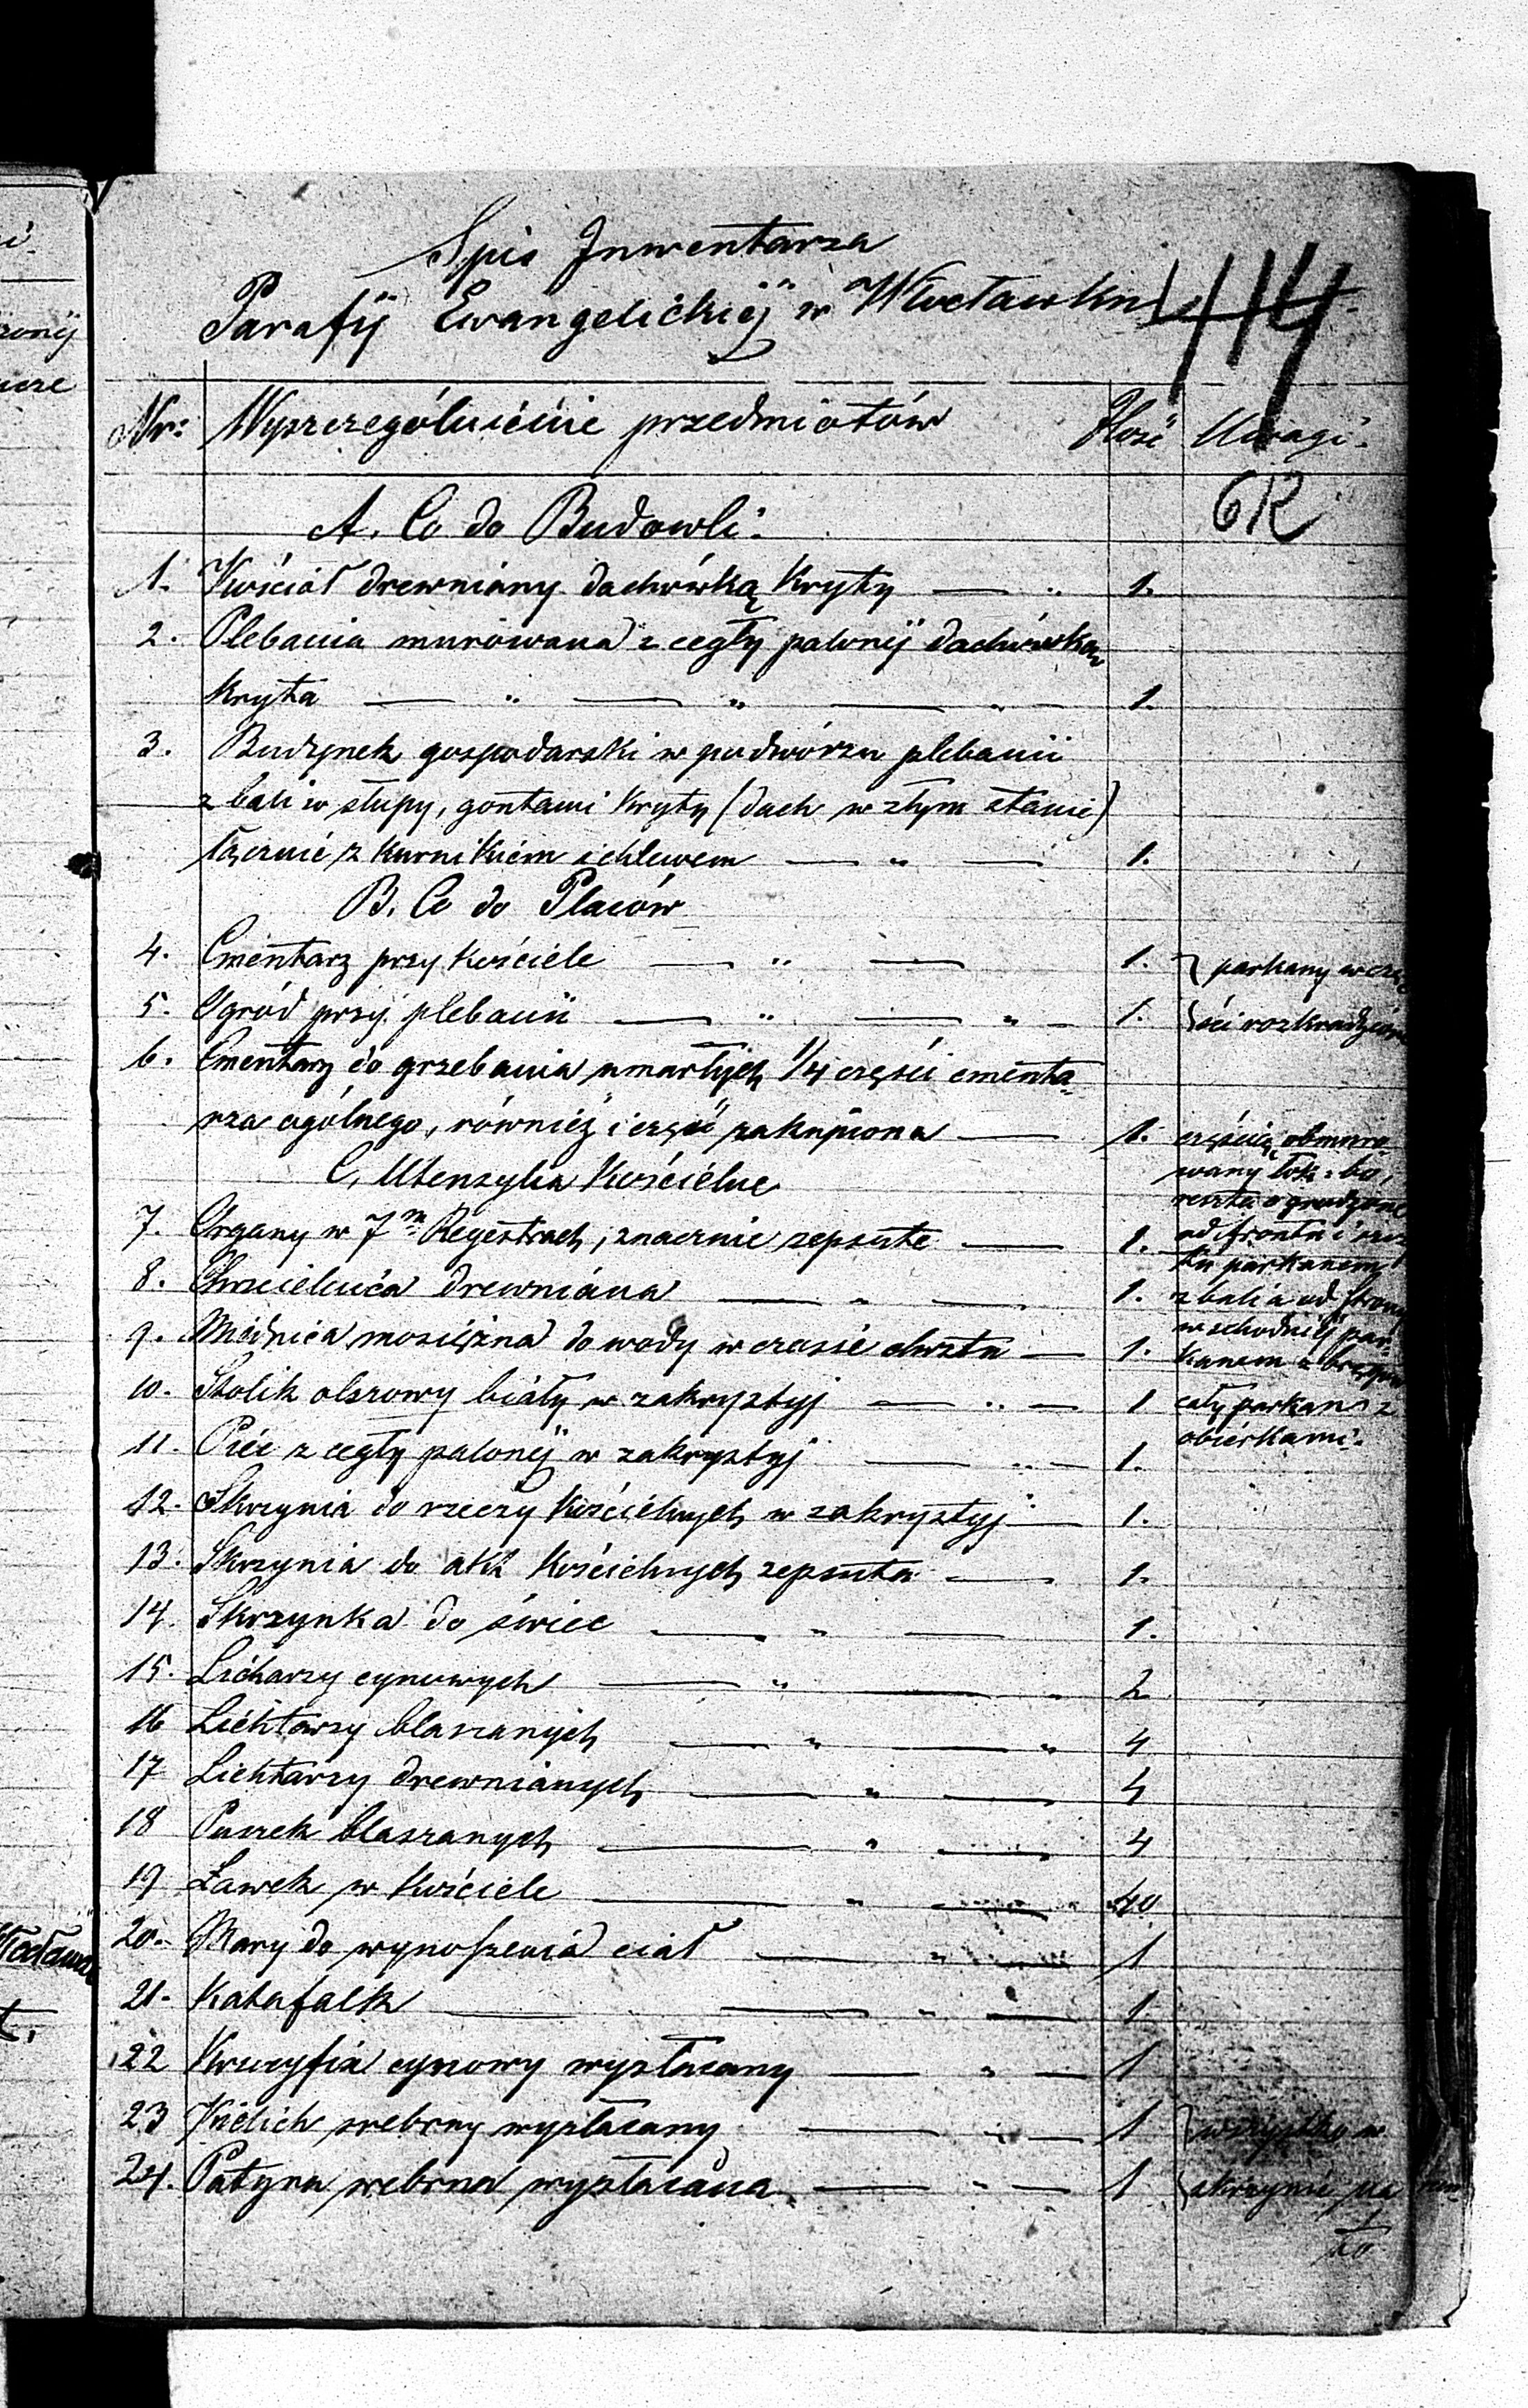 Spis Inwentarza
Parafij Ewangelickiéj w Włocławku
114
Nr: Wyszczególnienie przedmiotów Ilość Uwagi
6R
A. Co do Budowli
1. Kościół drewniany dachówką kryty 1.
2. Plebania murowana z cegły palonéj dachówką
kryta 1.
3. Budynek gospodarski w podwórzu plebanii
z bali w słupy, gontami kryty (dach w złym stanie)
łącznie z kurnikiem i chlewem 1.
B. Co do Placów
4. Cmentarz przy kościele 1. parkany w częś
5. Ogród przy plebanii 1. ści rozkradzione
6. Cmentarz do grzebania umarłych 1/4 części cmenta-
rza ogólnego, również i część zakupiona 1. częścią obmuro-
C. Utensylia Kościelne wany
reszta ogrodzona
7. Organy w 7m Regestrach, znacznie zepsute 1. od frontu i
parkanem
8. Chrzcielnica drewniana 1. z bali a od strony
wschodniéj par-
9. Miednica mosiężna do wody w czasie chrztu 1. kanem z
10. Stolik olszowy biały w zakrystyj 1 cały parkan z
obierkami.
11. Piec z cegły palonéj w zakrystyj 1.
12. Skrzynia do rzeczy kościelnych w zakrystyj 1.
13. Skrzynia do akt kościelnych zepsuta 1.
14. Skrzynka do świec 1.
15. Lichtarzy cynowych 2
16 Lichtarzy blaszanych 4
17 Lichtarzy drewnianych 4
18 Puszek blaszanych 4
19 Ławek w kościele 40
20. Mary do wynoszenia ciał 1
21. Katafalk 1
22 Krucyfix cynowy wyzłacany 1
23 Kielich srebrny wyzłacany 1 wszystko w
24. Patyna srebrna wyzłacana 1 skrzynie na